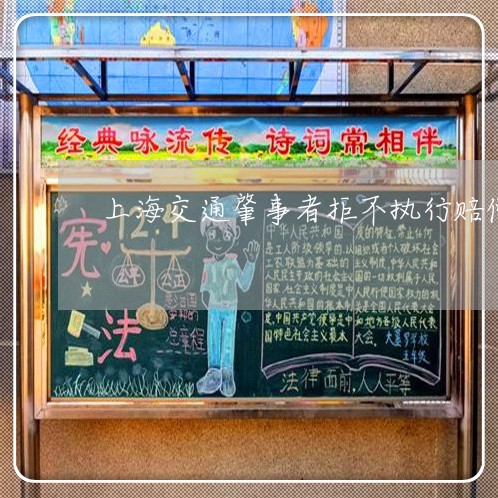 经典咏流传 诗词常相伴
上海交通肇事者拒不执行赔
宪法
12.4
公平
公正
总章程
中华人民共和国
是工人阶级领导的,以
工农联盟为基础的
人民民主专政的社会主义
国家。社会主义制度是中
华人民共和国的根本制
度。中国共产党领导是中
国特色社会主义最本
质的特征。禁止任何
组织或者个人破坏社会
主义制度。中华人民共和
国的一切权利属于人民。
人民行使国家权力的机
关是全国人民代表大会
和地方各级人民代表
大会。
五年级
法律面前,人人平等